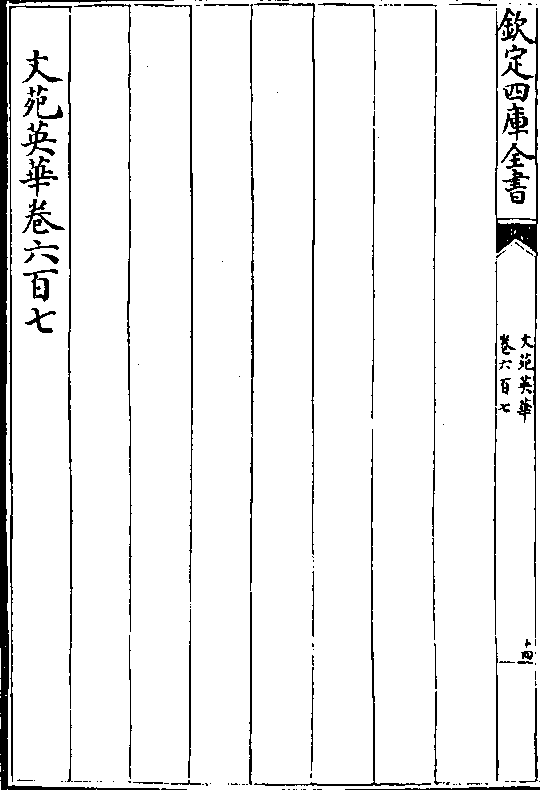 欽定四庫全書
文苑英華
卷六百七
十四
文苑英華卷六百七